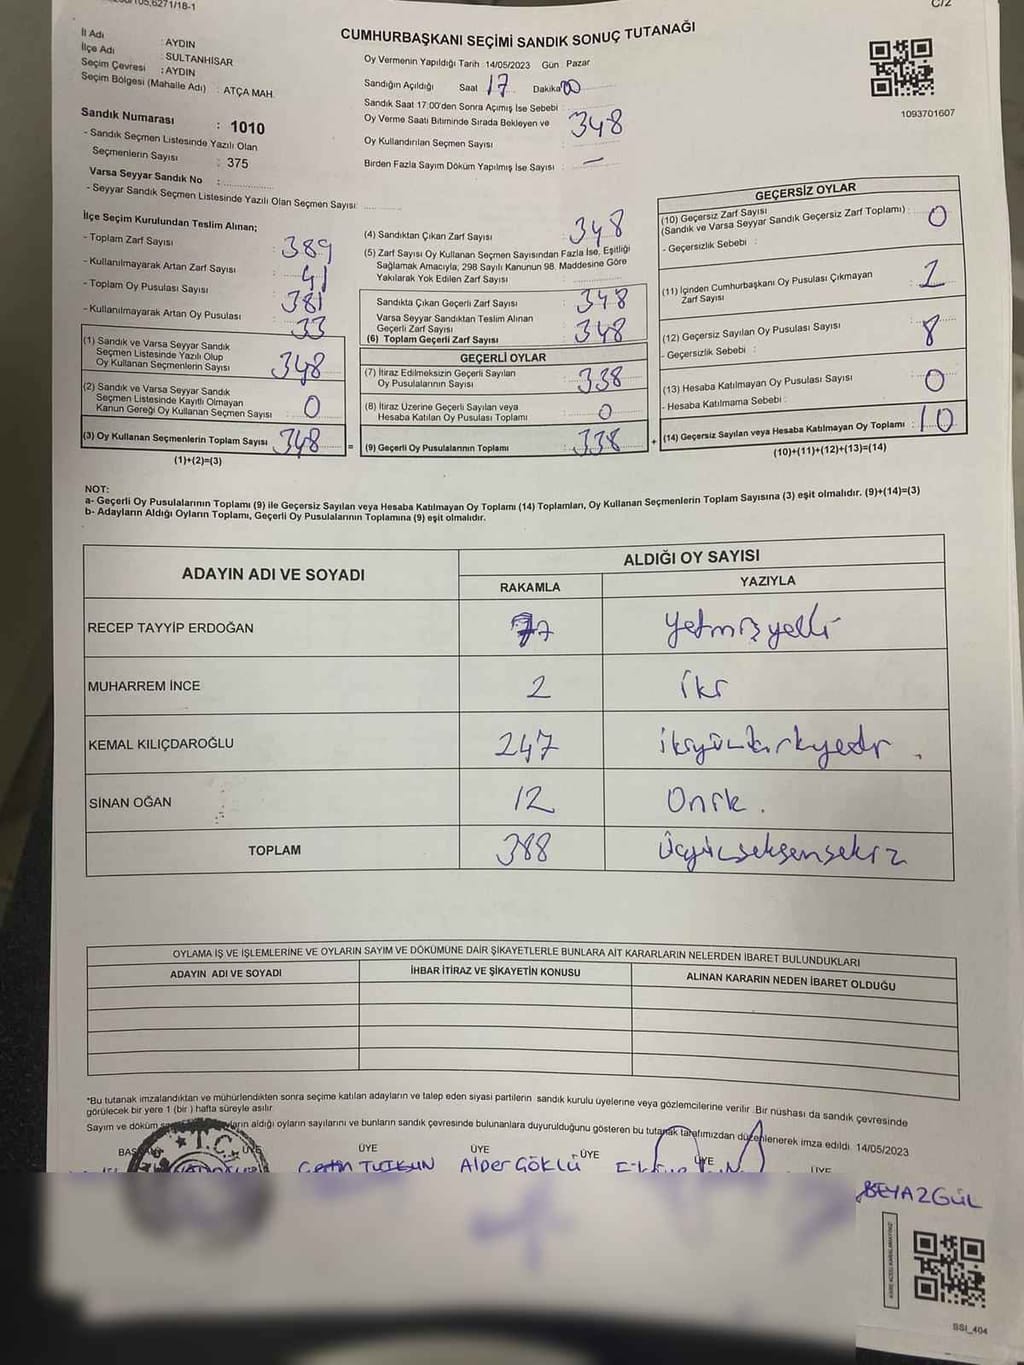 C/2
CUMHURBAŞKANI SEÇİMİ SANDIK SONUÇ TUTANAĞI
İl Adı : AYDIN
İlçe Adı : SULTANHİSAR
Seçim Çevresi : AYDIN
Seçim Bölgesi (Mahalle Adı) : ATÇA MAH.
Sandık Numarası : 1010
- Sandık Seçmen Listesinde Yazılı Olan
Seçmenlerin Sayısı : 375
Varsa Seyyar Sandık No :
- Seyyar Sandık Seçmen Listesinde Yazılı Olan Seçmen Sayısı:
Oy Vermenin Yapıldığı Tarih 14/05/2023 Gün : Pazar
Sandığın Açıldığı Saat 17 Dakika 00
Sandık Saat 17:00'den Sonra Açımış İse Sebebi :
Oy Verme Saati Bitiminde Sırada Bekleyen ve
Oy Kullandırılan Seçmen Sayısı : 348
Birden Fazla Sayım Döküm Yapılmış İse Sayısı : —
1093701607
İlçe Seçim Kurulundan Teslim Alınan;
- Toplam Zarf Sayısı : 389
- Kullanılmayarak Artan Zarf Sayısı : 41
- Toplam Oy Pusulası Sayısı : 381
- Kullanılmayarak Artan Oy Pusulası : 33
(1) Sandık ve Varsa Seyyar Sandık
Seçmen Listesinde Yazılı Olup
Oy Kullanan Seçmenlerin Sayısı : 348
(2) Sandık ve Varsa Seyyar Sandık
Seçmen Listesinde Kayıtlı Olmayan
Kanun Gereği Oy Kullanan Seçmen Sayısı : 0
(3) Oy Kullanan Seçmenlerin Toplam Sayısı : 348
(1)+(2)=(3)
(4) Sandıktan Çıkan Zarf Sayısı : 348
(5) Zarf Sayısı Oy Kullanan Seçmen Sayısından Fazla İse, Eşitliği
Sağlamak Amacıyla; 298 Sayılı Kanunun 98. Maddesine Göre
Yakılarak Yok Edilen Zarf Sayısı :
Sandıkta Çıkan Geçerli Zarf Sayısı : 348
Varsa Seyyar Sandıktan Teslim Alınan
Geçerli Zarf Sayısı :
(6) Toplam Geçerli Zarf Sayısı : 348
GEÇERLİ OYLAR
(7) İtiraz Edilmeksizin Geçerli Sayılan
Oy Pusulalarının Sayısı : 338
(8) İtiraz Üzerine Geçerli Sayılan veya
Hesaba Katılan Oy Pusulası Toplamı : 0
= (9) Geçerli Oy Pusulalarının Toplamı : 338
GEÇERSİZ OYLAR
(10) Geçersiz Zarf Sayısı
(Sandık ve Varsa Seyyar Sandık Geçersiz Zarf Toplamı) : 0
- Geçersizlik Sebebi :
(11) İçinden Cumhurbaşkanı Oy Pusulası Çıkmayan
Zarf Sayısı : 2
(12) Geçersiz Sayılan Oy Pusulası Sayısı : 8
- Geçersizlik Sebebi :
(13) Hesaba Katılmayan Oy Pusulası Sayısı : 0
- Hesaba Katılmama Sebebi :
+ (14) Geçersiz Sayılan veya Hesaba Katılmayan Oy Toplamı : 10
(10)+(11)+(12)+(13)=(14)
NOT:
a- Geçerli Oy Pusulalarının Toplamı (9) ile Geçersiz Sayılan veya Hesaba Katılmayan Oy Toplamı (14) Toplamları, Oy Kullanan Seçmenlerin Toplam Sayısına (3) eşit olmalıdır. (9)+(14)=(3)
b- Adayların Aldığı Oyların Toplamı, Geçerli Oy Pusulalarının Toplamına (9) eşit olmalıdır.
ADAYIN ADI VE SOYADI ALDIĞI OY SAYISI
RAKAMLA YAZIYLA
RECEP TAYYİP ERDOĞAN 77 yetmişyedi
MUHARREM İNCE 2 iki
KEMAL KILIÇDAROĞLU 247 ikiyüzkırkyedi
SİNAN OĞAN 12 Oniki
TOPLAM 388 üçyüzseksensekiz
OYLAMA İŞ VE İŞLEMLERİNE VE OYLARIN SAYIM VE DÖKÜMÜNE DAİR ŞİKAYETLERLE BUNLARA AİT KARARLARIN NELERDEN İBARET BULUNDUKLARI
ADAYIN ADI VE SOYADI İHBAR İTİRAZ VE ŞİKAYETİN KONUSU ALINAN KARARIN NEDEN İBARET OLDUĞU
*Bu tutanak imzalandıktan ve mühürlendikten sonra seçime katılan adayların ve talep eden siyasi partilerin sandık kurulu üyelerine veya gözlemcilerine verilir. Bir nüshası da sandık çevresinde
görülecek bir yere 1 (bir) hafta süreyle asılır.
Sayım ve döküm aldığı oyların sayılarını ve bunların sandık çevresinde bulunanlara duyurulduğunu gösteren bu tutanak tarafımızdan düzenlenerek imza edildi. 14/05/2023
ÜYE ÜYE ÜYE ÜYE ÜYE
T.C.
Alper GÖKLÜ
BEYAZGÜL
SSI_404